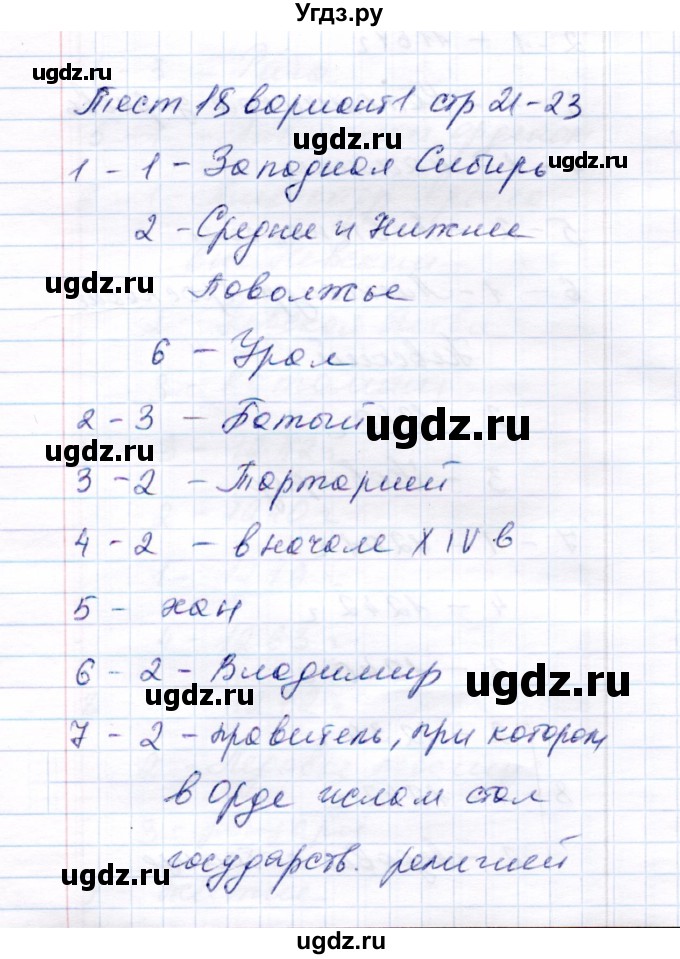 Угдз.ру
ugdz.ru
Тест 18 вариант 1 стр 21-23
ugdz.ru
1 - 1 - Западная Сибирь
ugdz.ru
2 - Средние и Нижние
ugdz.ru ugdz.ru
Поволжье
6 - Урал
2 - 3 - Батый
ugdz.ru
ugdz.ru
3 - 2 - Тартарией
4 - 2 - в начале XIV в
ugdz.ru
5 - хан
ugdz.ru
6 - 2 - Владимир
ugdz.ru ugdz.ru
7 - 2 - правитель, при котором
ugdz.ru
в Орде ислам стал
ugdz.ru
государств. религией
ugdz.ru
ugdz.ru